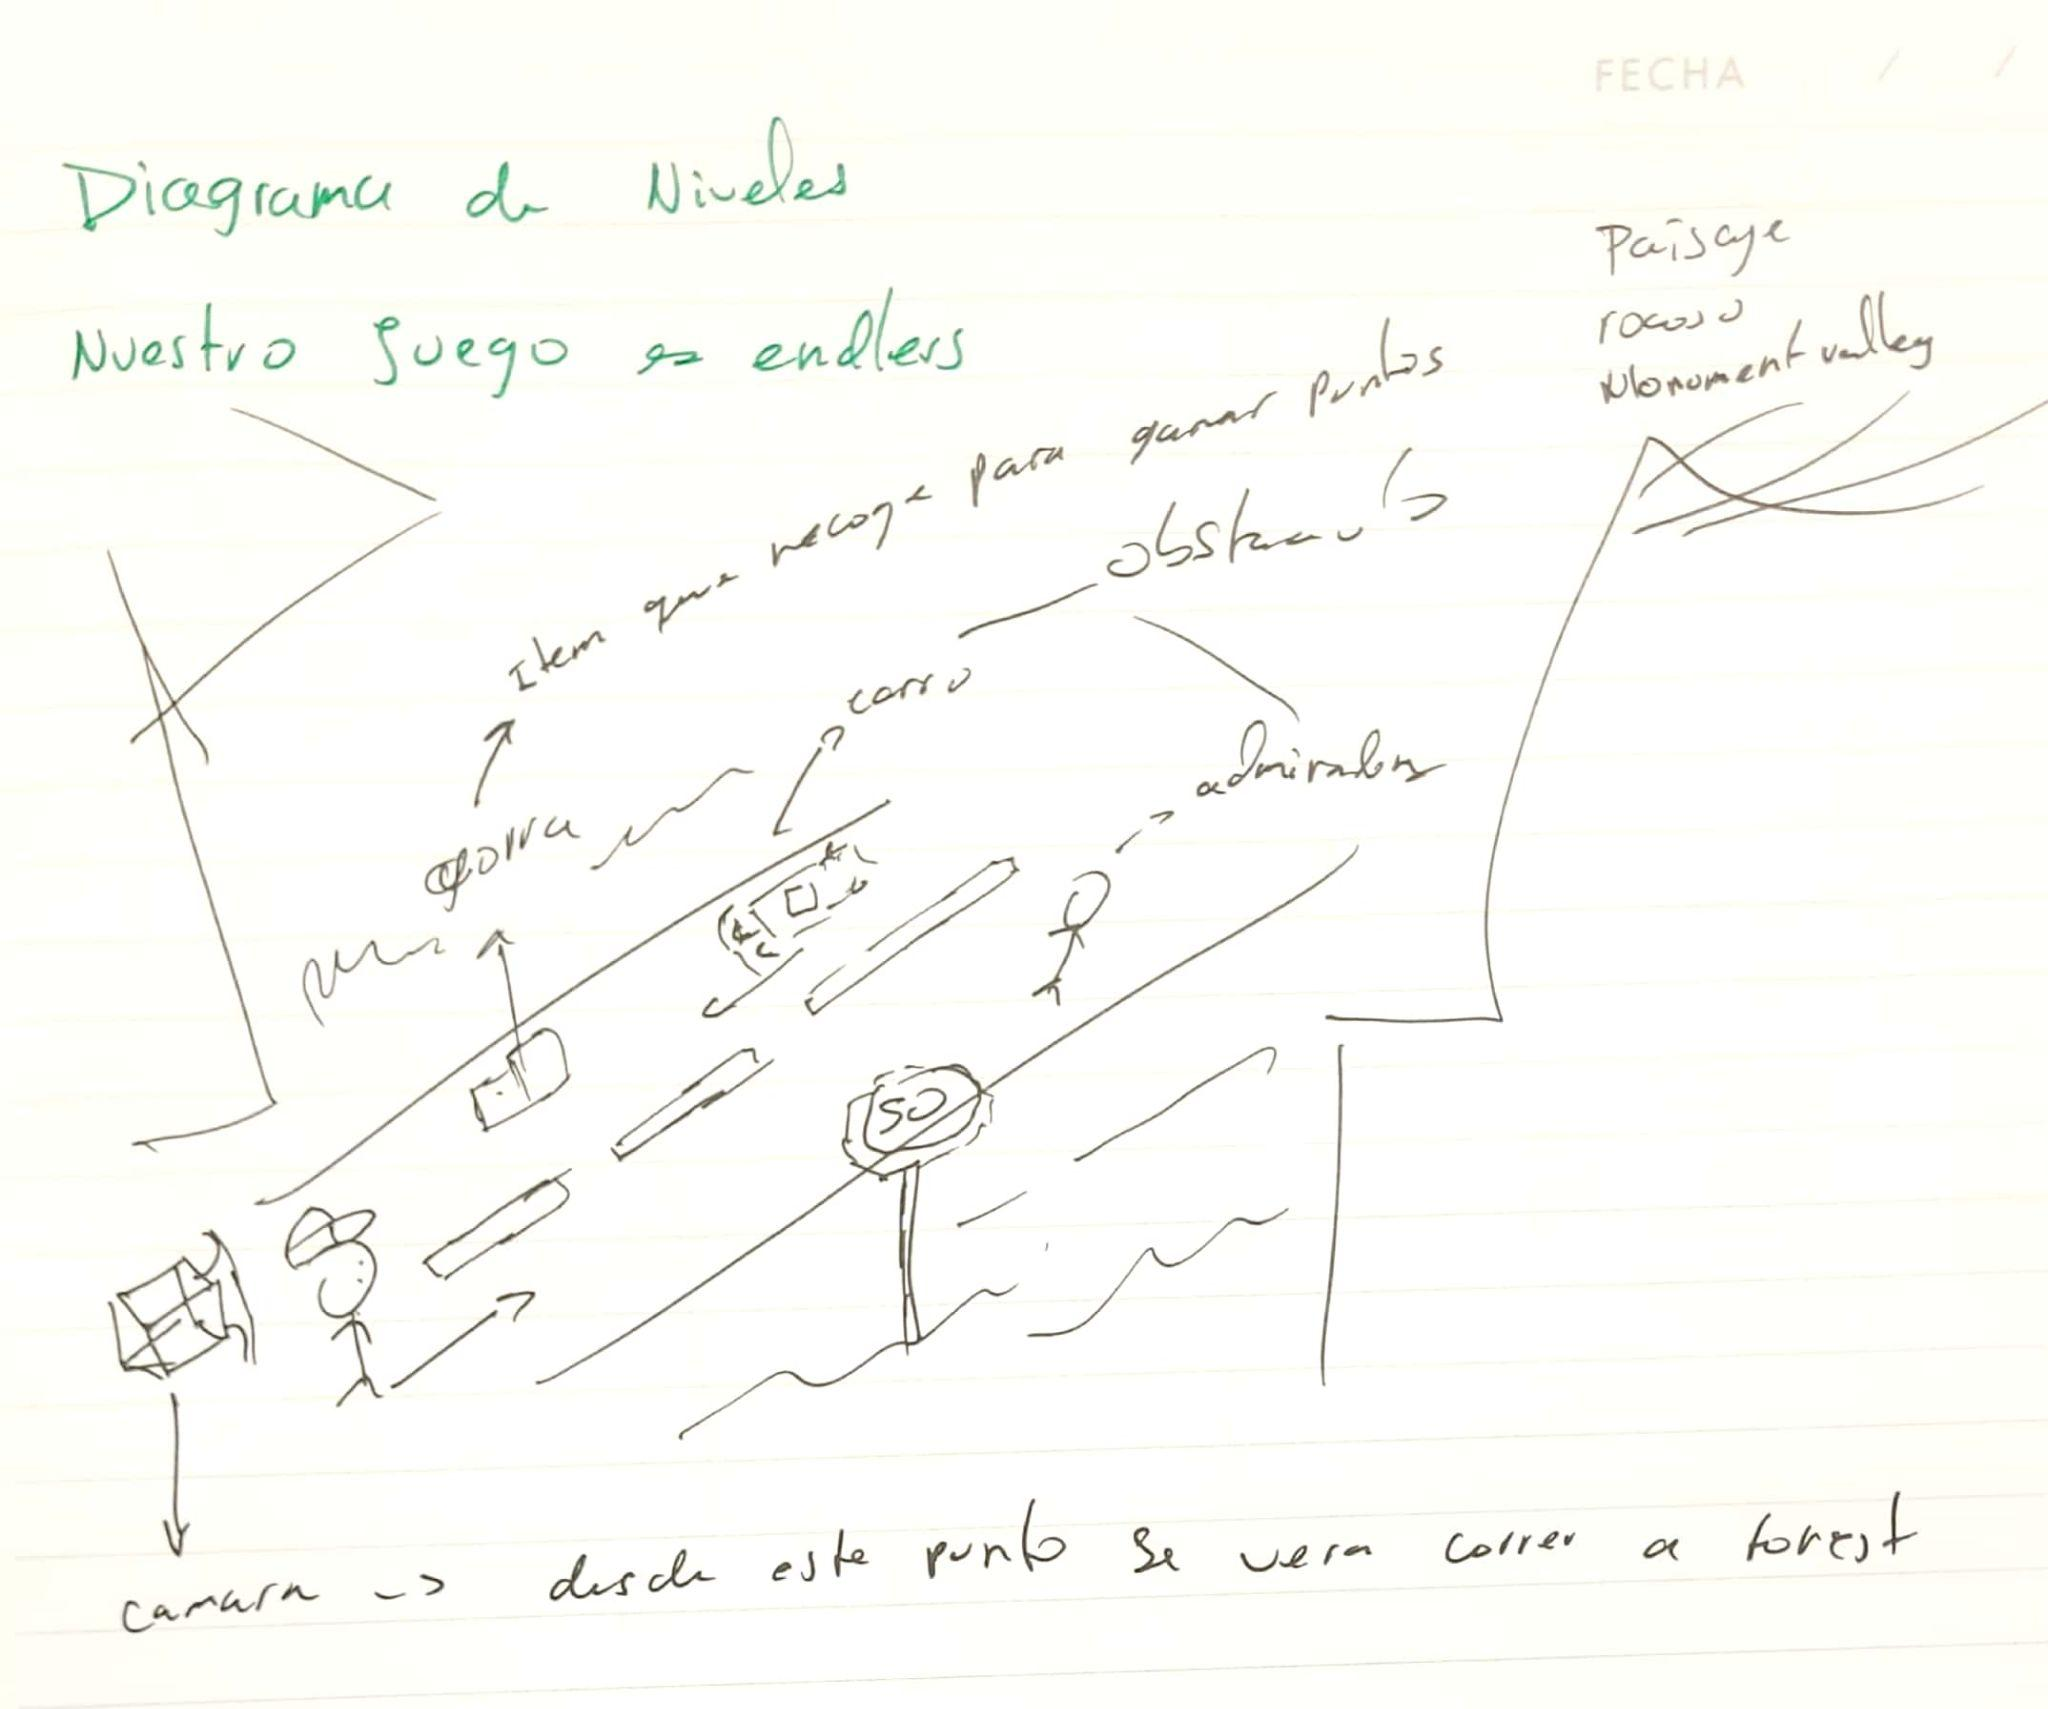 FECHA / /
Diagrama de Niveles
Nuestro juego es endless
Paisaje
rocoso
Monument valley
Item que recoge para ganar puntos
obstaculo
carro
admirador
gorra
50
camara -> desde este punto se vera correr a forest